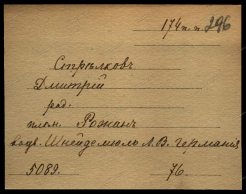 174 п. п. 296
Стрѣлковъ
Дмитрій
ряд.
плѣн. Рожан
водв. Шнейдемюль А.В. Германія
5089. 76.